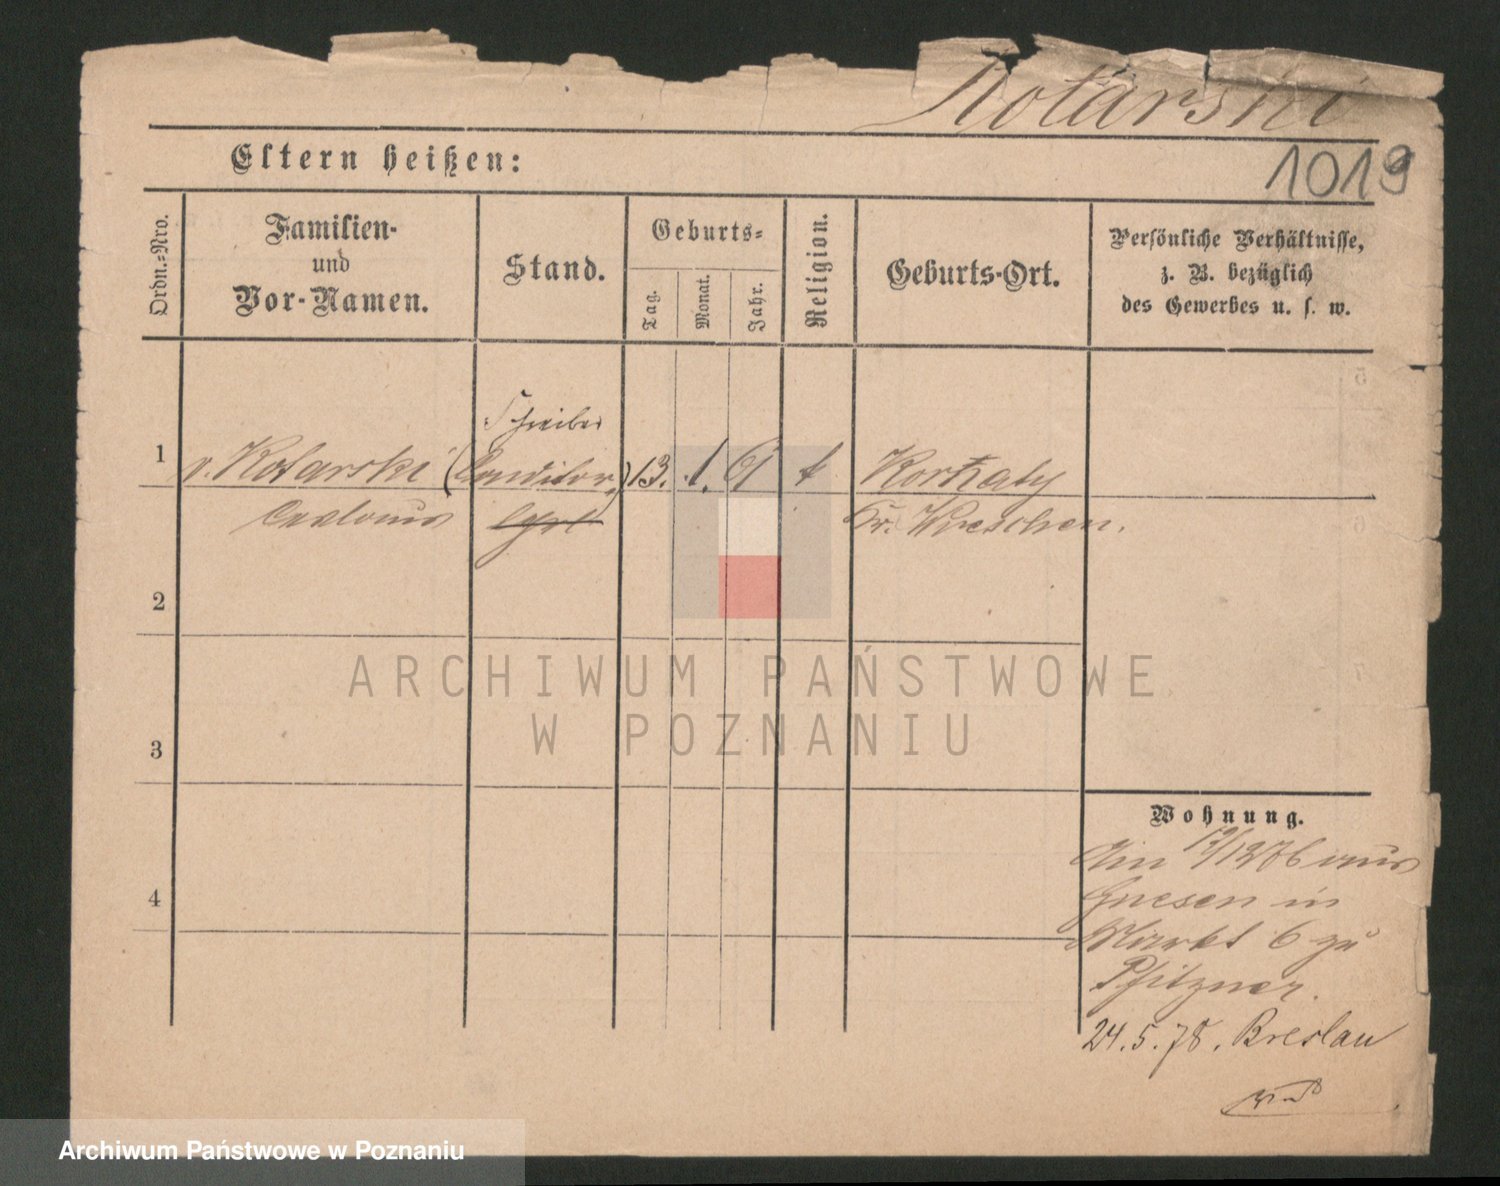 Kotarski
1019
Eltern heißen:
Ordn.-Nro.
Familien-
und
Vor-Namen.
Stand.
Geburts-
Tag.
Monat.
Jahr.
Religion.
Geburts-Ort.
Persönliche Verhältnisse,
z. B. bezüglich
des Gewerbes u. s. w.
Schreiber
1 v. Kotarski (Conditor) 13. 1. 61 k
Kr. Wreschen.
2
3
4
Wohnung.
Am 12/12 76 aus
Gnesen in
Markt 6 zu
Pfitzner.
24.5.78. Breslau
ARCHIWUM PAŃSTWOWE
W POZNANIU
Archiwum Państwowe w Poznaniu